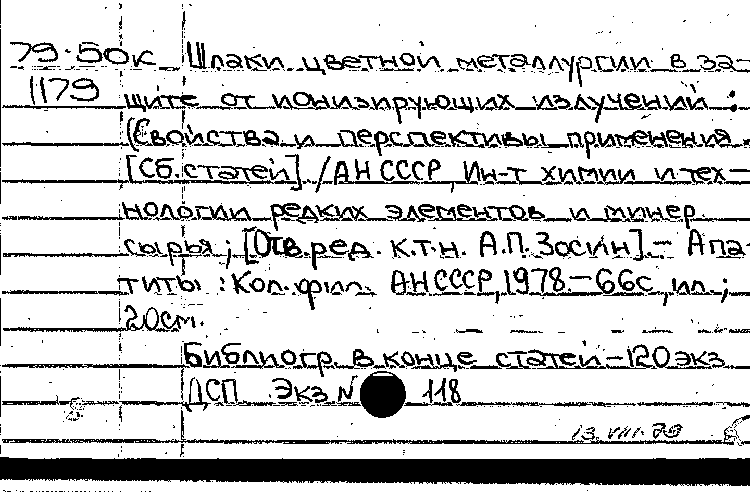 79-50к Шлаки цветной металлургии в за-
1179 щите от ионизирующих излучений :
(Свойства и перспективы применения.
[Сб. статей] /АН СССР, Ин-т химии и тех-
нологии редких элементов и минер.
сырья; [Отв. ред. к.т.н. А.П. Зосин]. – Апа-
титы : Кол. фил. АН СССР, 1978. – 66с, ил.;
20см.
Библиогр. в конце статей – 120 экз
ДСП Экз N 118
13.VIII.79